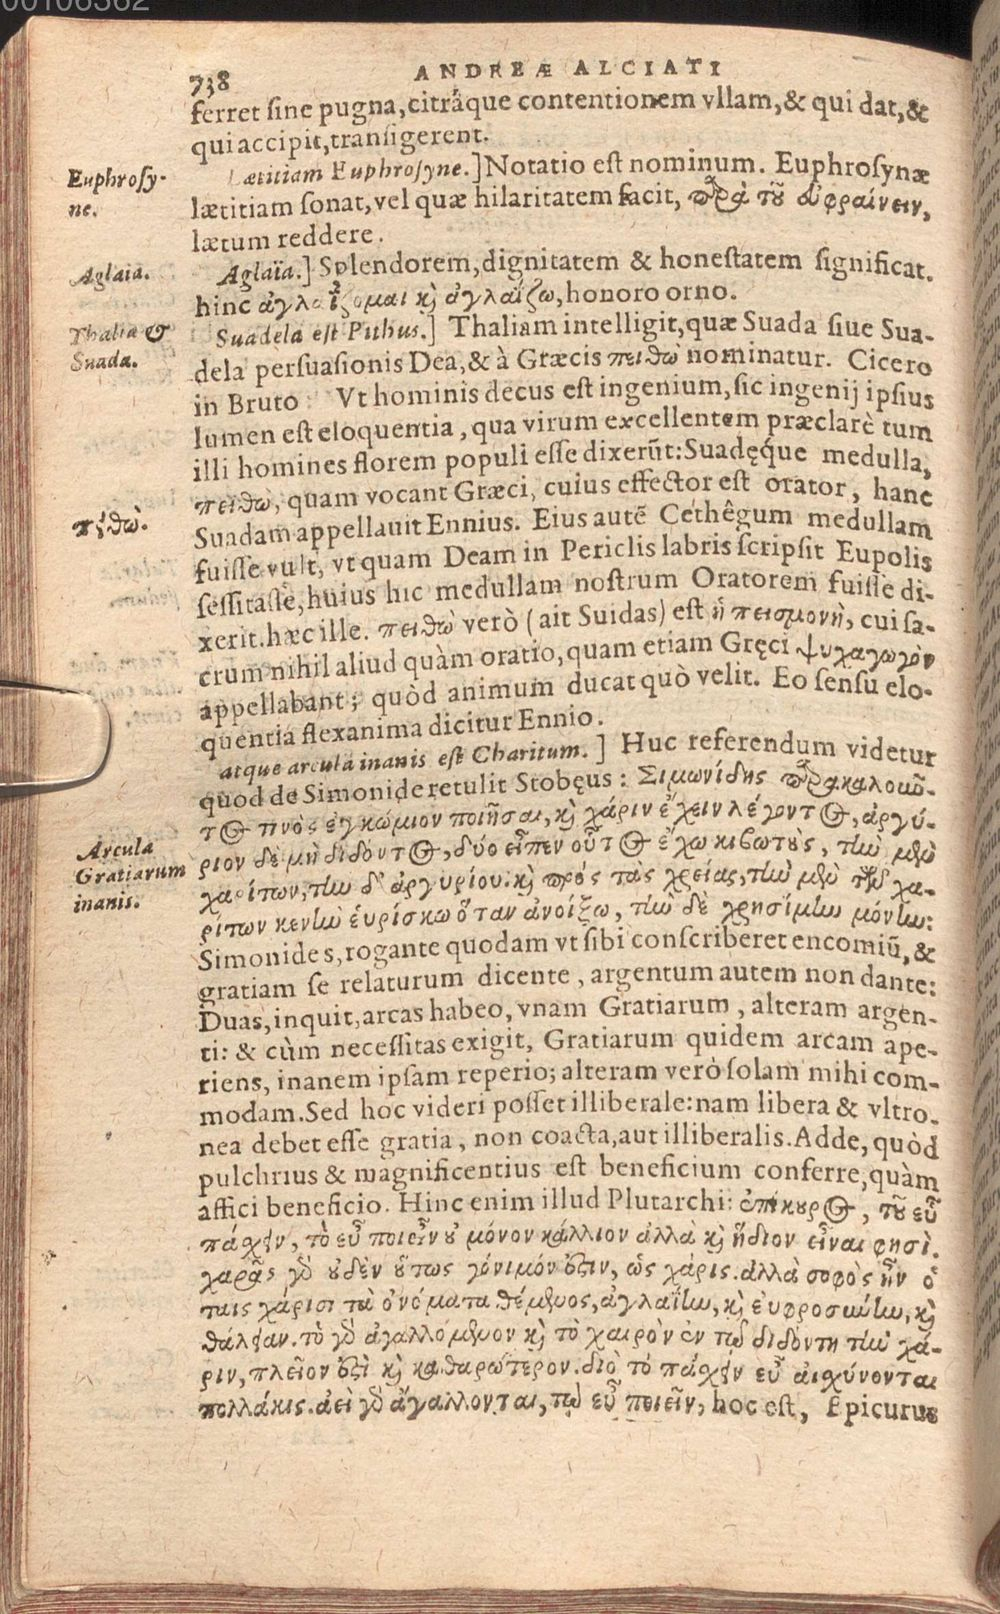 00106362
738 ANDREÆ ALCIATI
ferret sine pugna, citráque contentionem vllam, & qui dat, &
qui accipit, transigerent.
Lætitiam Euphrosyne.] Notatio est nominum. Euphrosynæ
Euphrosy-
ne.
lætitiam sonat, vel quæ hilaritatem facit, παρὰ τοῦ εὐφραίνειν,
lætum reddere.
Aglaïa.] Splendorem, dignitatem & honestatem significat.
Aglaia.
hinc ἀγλαΐζομαι καὶ ἀγλαΐζω, honoro orno.
Suadela est Pithus.] Thaliam intelligit, quæ Suada siue Sua-
Thalia &
Suada.
dela persuasionis Dea, & à Græcis πειθω nominatur. Cicero
in Bruto: Vt hominis decus est ingenium, sic ingenij ipsius
lumen est eloquentia, qua virum excellentem præclarè tum
illi homines florem populi esse dixerūt: Suadęque medulla,
πειθω, quam vocant Græci, cuius effector est orator, hanc
πειθώ.
Suadam appellauit Ennius. Eius autē Cethêgum medullam
fuisse vult, vt quam Deam in Periclis labris scripsit Eupolis
sessitasse, huius hic medullam nostrum Oratorem fuisse di-
xerit. hæc ille. πειθὼ verò (ait Suidas) est ἡ πεισμονὴ, cui sa-
crum nihil aliud quàm oratio, quam etiam Gręci ψυχαγωγὸν
appellabant; quòd animum ducat quò velit. Eo sensu elo-
quentia flexanima dicitur Ennio.
atque arcula inanis est Charitum.] Huc referendum videtur
quod de Simonide retulit Stobęus: Σιμωνίδης παρακαλοῦν-
τος τινὸς ἐγκώμιον ποιῆσαι, καὶ χάριν ἔχειν λέγοντος, ἀργύ-
ριον δὲ μὴ διδόντος, δύο εἶπεν οὗτος ἔχω κιβωτοὺς, τὴν μὲν
Arcula
Gratiarum
inanis.
χαρίτων, τὴν δ' ἀργυρίου. καὶ πρὸς τὰς χρείας, τὴν μὲν τῶν χα-
ρίτων κενὴν εὑρίσκω ὅταν ἀνοίξω, τὴν δὲ χρησίμην μόνην:
Simonides, rogante quodam vt sibi conscriberet encomiū, &
gratiam se relaturum dicente, argentum autem non dante:
Duas, inquit, arcas habeo, vnam Gratiarum, alteram argen-
ti: & cùm necessitas exigit, Gratiarum quidem arcam ape-
riens, inanem ipsam reperio; alteram verò solam mihi com-
modam. Sed hoc videri posset illiberale: nam libera & vltro-
nea debet esse gratia, non coacta, aut illiberalis. Adde, quòd
pulchrius & magnificentius est beneficium conferre, quàm
affici beneficio. Hinc enim illud Plutarchi: ἐπίκουρος, τοῦ εὖ
πάσχειν, τὸ εὖ ποιεῖν οὐ μόνον κάλλιον ἀλλὰ καὶ ἥδιον εἶναι φησὶ.
χαρᾶς γὰρ οὐδὲν οὕτως γόνιμόν ἐστιν, ὡς χάρις. ἀλλὰ σοφὸς ἦν ὁ
ταις χάρισι τὰ ὀνόματα θέμενος, ἀγλαΐην, καὶ εὐφροσύνην, καὶ
θάλειαν. τὸ γὰρ ἀγαλλόμενον καὶ τὸ χαιρὸν ἐν τῷ διδόντι τὴν χά-
ριν, πλεῖον ἐστὶ καὶ καθαρώτερον. διὸ τὸ πάσχειν εὖ αἰσχύνονται
πολλάκις. ἀεὶ γὰρ ἀγάλλονται, τῷ εὖ ποιεῖν, hoc est, Epicurus